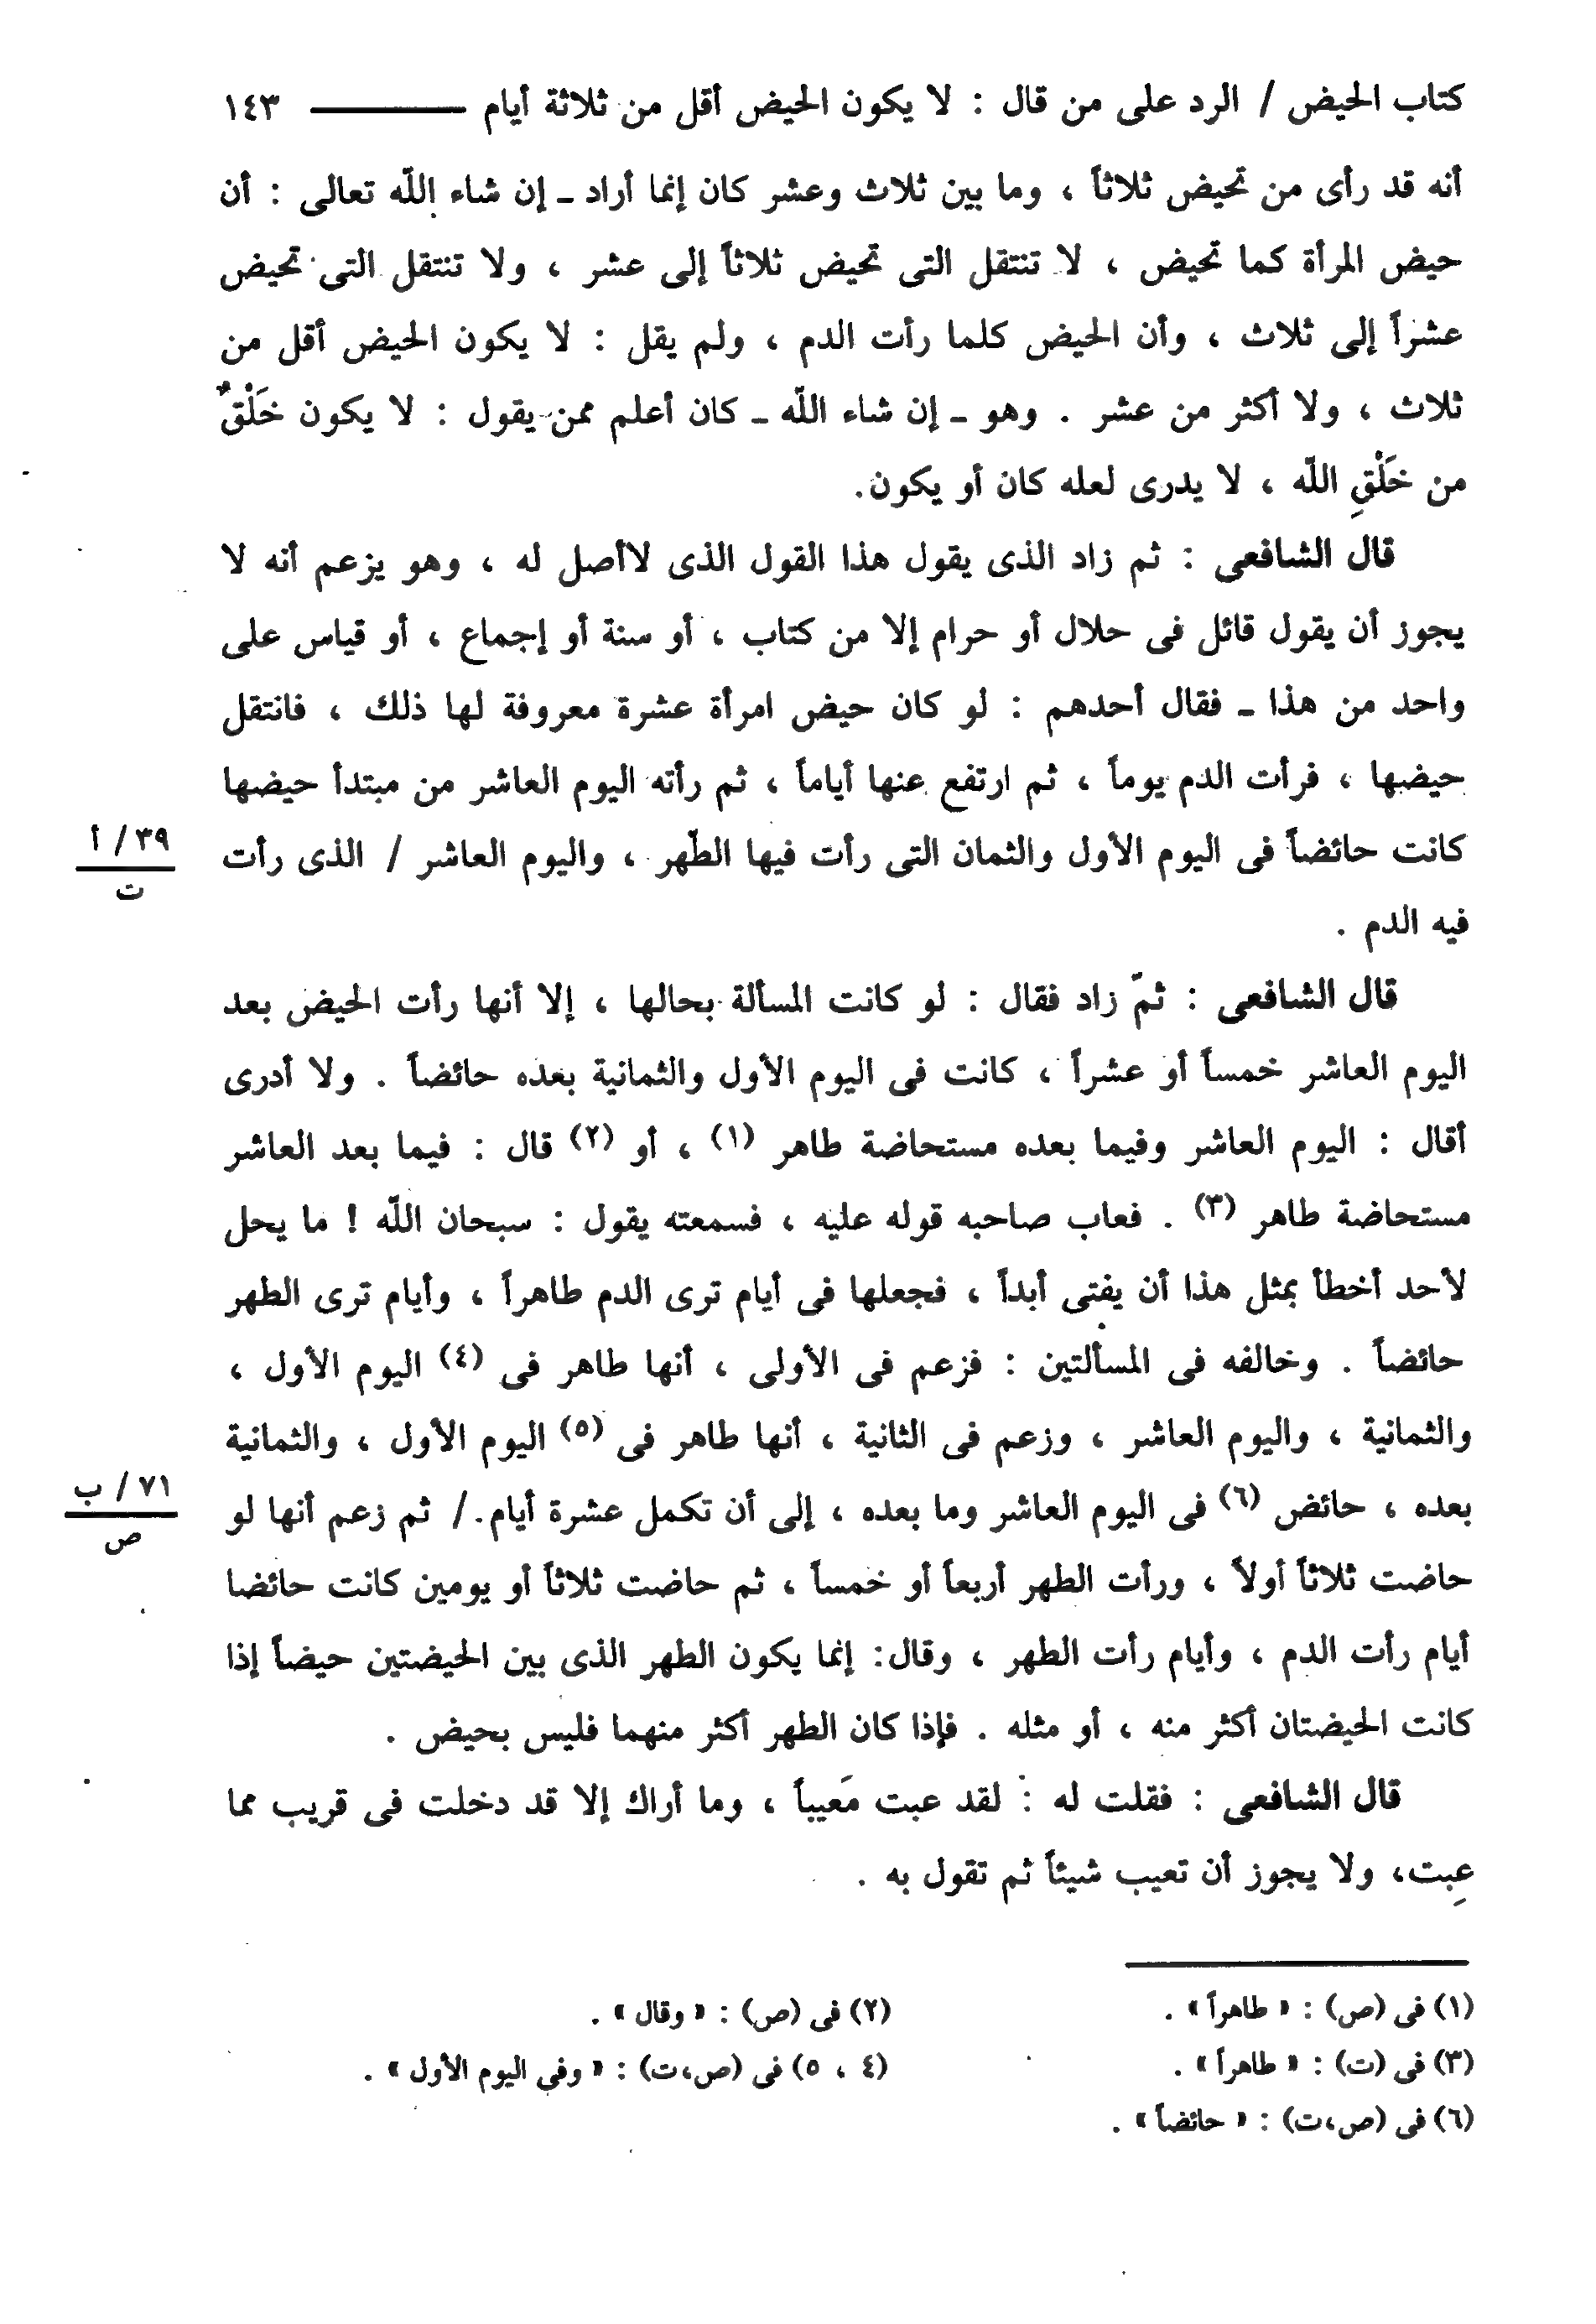 كتاب الحيض / الرد على من قال : لا يكون الحيض أقل من ثلاثة أيام ــــــــــ ١٤٣
أنه قد رأى من تحيض ثلاثاً ، وما بين ثلاث وعشر كان إنما أراد ـ إن شاء الله تعالى : أن
حيض المرأة كما تحيض ، لا تنتقل التى تحيض ثلاثاً إلى عشر ، ولا تنتقل التى تحيض
عشراً إلى ثلاث ، وأن الحيض كلما رأت الدم ، ولم يقل : لا يكون الحيض أقل من
ثلاث ، ولا أكثر من عشر . وهو ـ إن شاء الله ـ كان أعلم ممن يقول : لا يكون خَلْقٌ
من خَلْقِ الله ، لا يدرى لعله كان أو يكون.
قال الشافعى : ثم زاد الذى يقول هذا القول الذى لاأصل له ، وهو يزعم أنه لا
يجوز أن يقول قائل فى حلال أو حرام إلا من كتاب ، أو سنة أو إجماع ، أو قياس على
واحد من هذا ـ فقال أحدهم : لو كان حيض امرأة عشرة معروفة لها ذلك ، فانتقل
حيضها ، فرأت الدم يوماً ، ثم ارتفع عنها أياماً ، ثم رأته اليوم العاشر من مبتدأ حيضها
كانت حائضاً فى اليوم الأول والثمان التى رأت فيها الطّهر ، واليوم العاشر / الذى رأت
٣٩ / أ
ت
فيه الدم .
قال الشافعى : ثمّ زاد فقال : لو كانت المسألة بحالها ، إلا أنها رأت الحيض بعد
اليوم العاشر خمساً أو عشراً ، كانت فى اليوم الأول والثمانية بعده حائضاً . ولا أدرى
أقال : اليوم العاشر وفيما بعده مستحاضة طاهر (١) ، أو (٢) قال : فيما بعد العاشر
مستحاضة طاهر (٣) . فعاب صاحبه قوله عليه ، فسمعته يقول : سبحان الله ! ما يحل
لأحد أخطأ بمثل هذا أن يفتى أبداً ، فجعلها فى أيام ترى الدم طاهراً ، وأيام ترى الطهر
حائضاً . وخالفه فى المسألتين : فزعم فى الأولى ، أنها طاهر فى (٤) اليوم الأول ،
والثمانية ، واليوم العاشر ، وزعم فى الثانية ، أنها طاهر فى (٥) اليوم الأول ، والثمانية
بعده ، حائض (٦) فى اليوم العاشر وما بعده ، إلى أن تكمل عشرة أيام. / ثم زعم أنها لو
٧١ / ب
ص
حاضت ثلاثاً أولاً ، ورأت الطهر أربعاً أو خمساً ، ثم حاضت ثلاثاً أو يومين كانت حائضا
أيام رأت الدم ، وأيام رأت الطهر ، وقال: إنما يكون الطهر الذى بين الحيضتين حيضاً إذا
كانت الحيضتان أكثر منه ، أو مثله . فإذا كان الطهر أكثر منهما فليس بحيض .
قال الشافعى : فقلت له : لقد عبت مَعيباً ، وما أراك إلا قد دخلت فى قريب مما
عِبت، ولا يجوز أن تعيب شيئاً ثم تقول به .
(١) فى (ص) : « طاهراً » .
(٢) فى (ص) : « وقال » .
(٣) فى (ت) : « طاهراً » .
(٤ ، ٥) فى (ص،ت) : « وفى اليوم الأول » .
(٦) فى (ص،ت) : « حائضاً » .